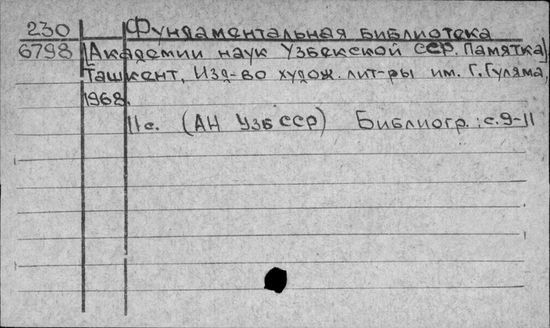 230 Фундаментальная библиотека
6798 [Академии наук Узбекской ССР. Памятка]
Ташкент, Изд-во худож. лит-ры им. Г. Гуляма,
1968.
11 с. (АН УзбССР) Библиогр.: с. 9-11